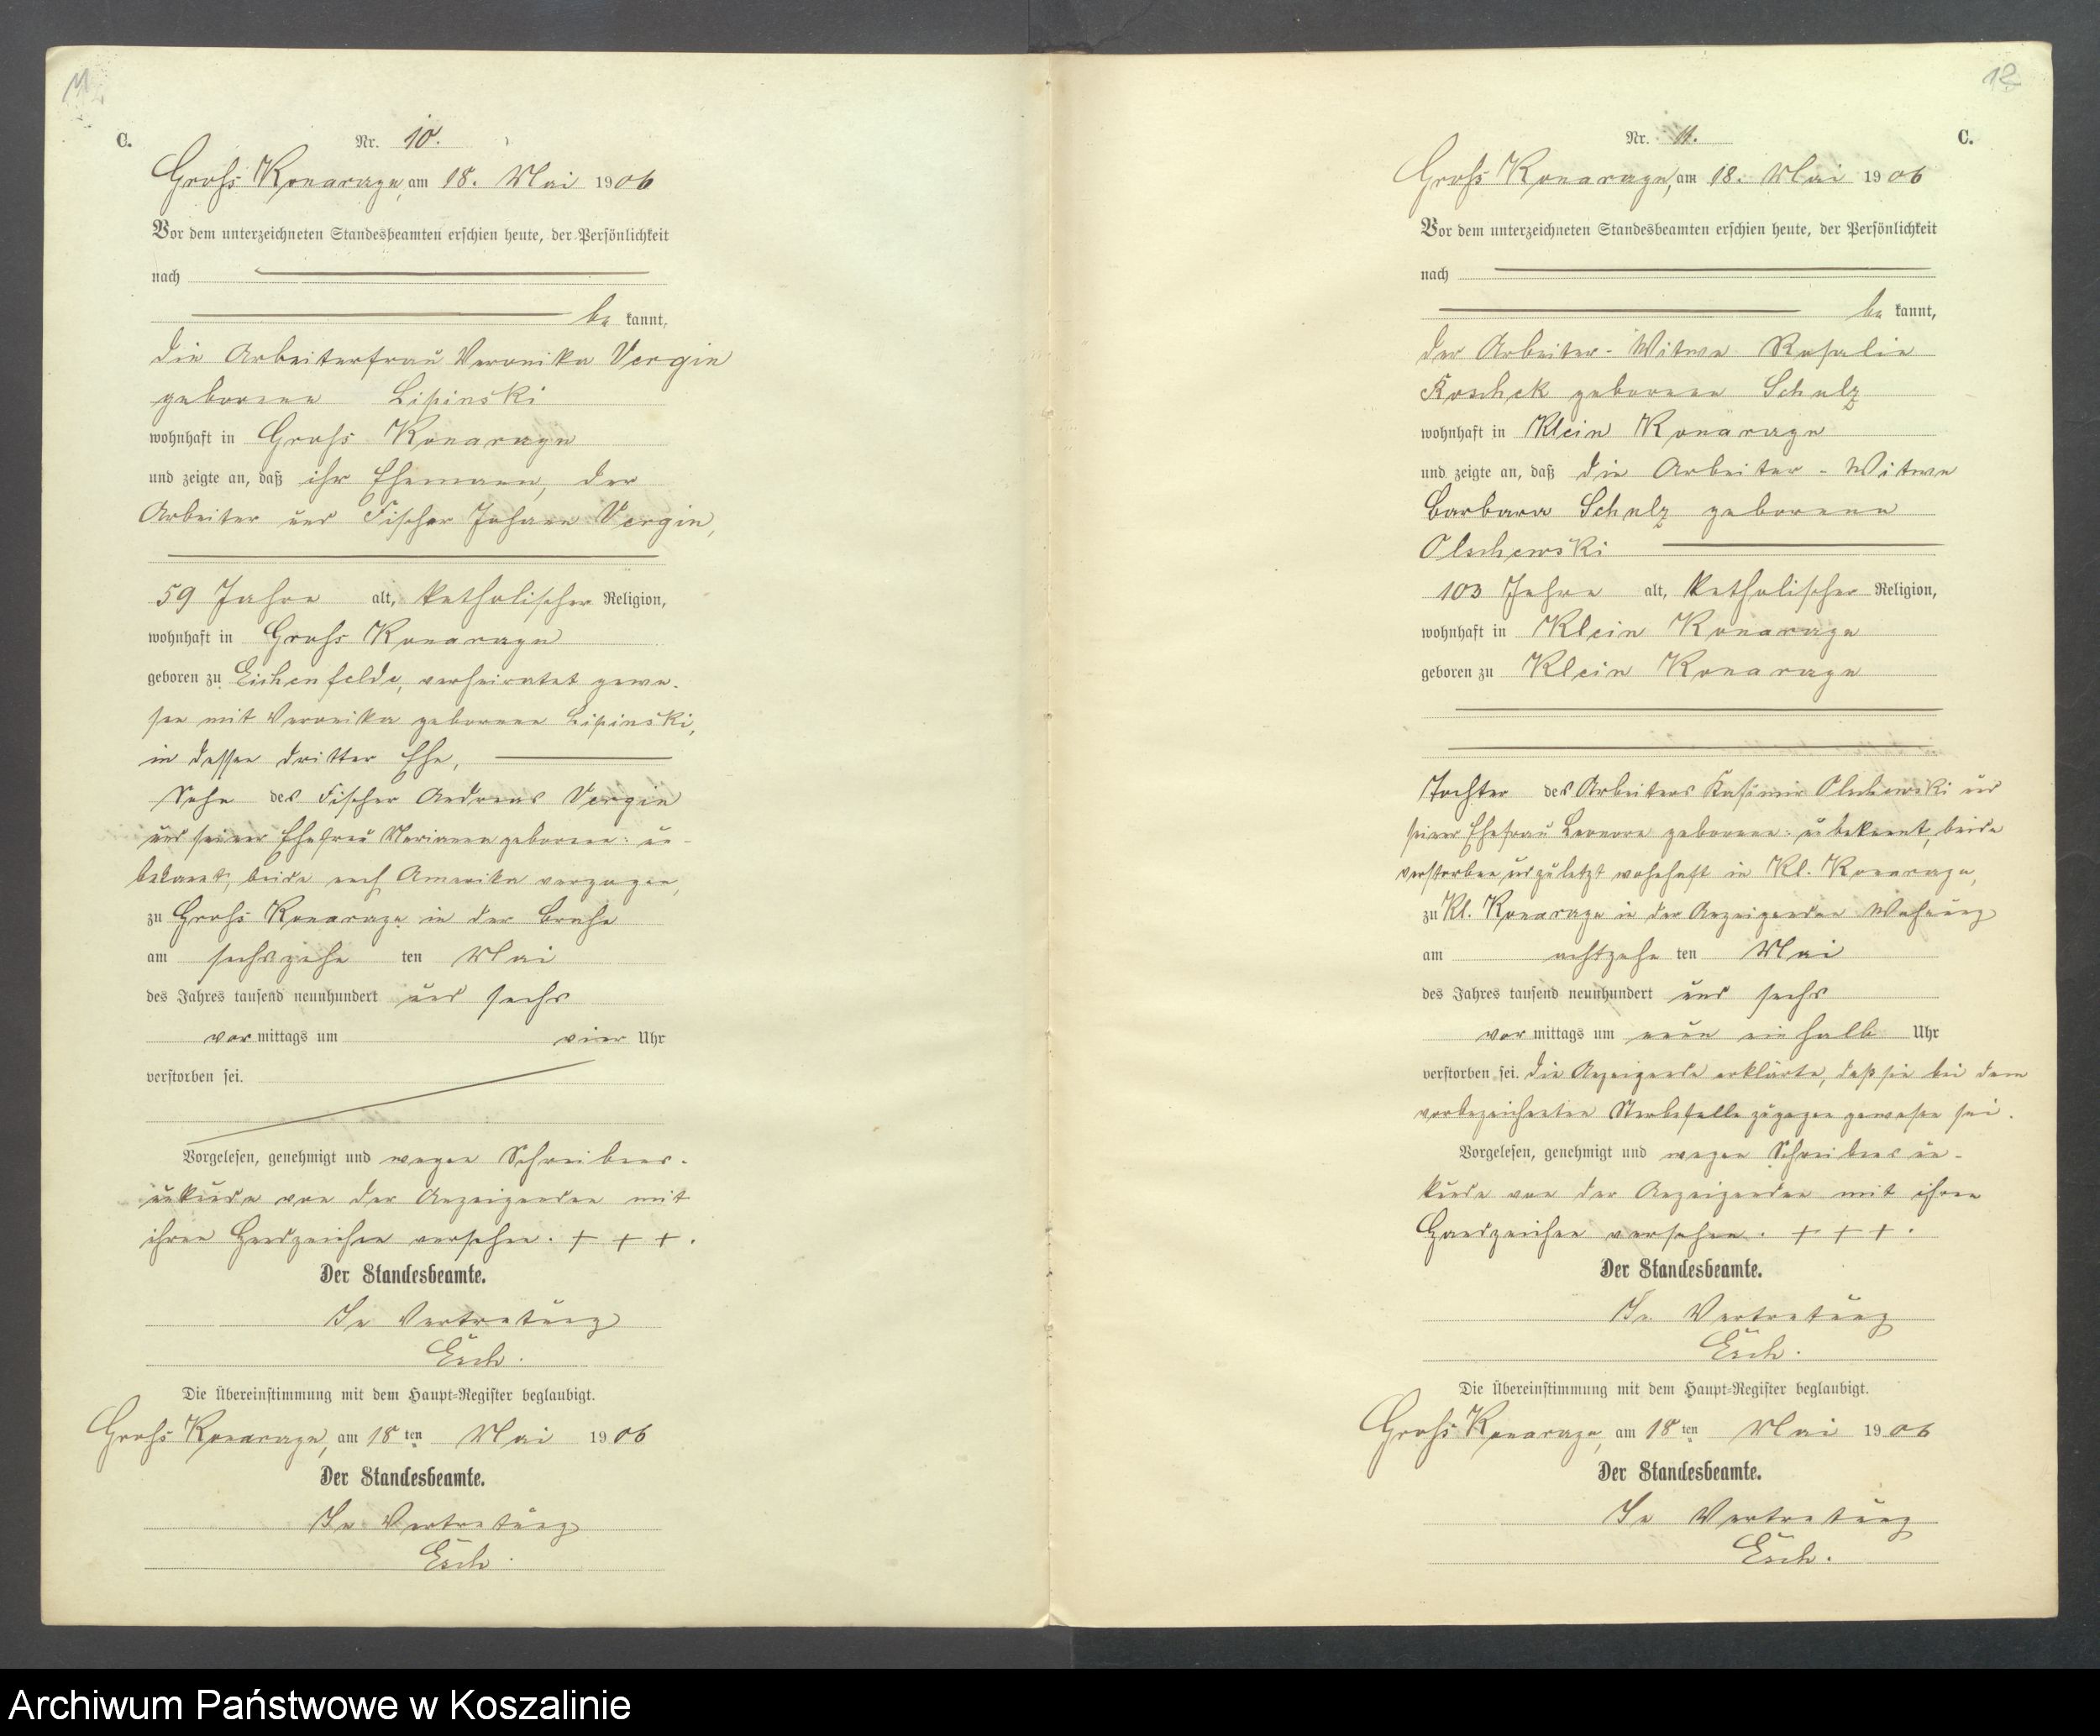 11
C. Nr. 10.
Groß Konarzyn, am 18. Mai 1906
Vor dem unterzeichneten Standesbeamten erschien heute, der Persönlichkeit
nach
be kannt,
die Arbeiterfrau Veronika Vergin
geborene Lipinski
wohnhaft in Groß Konarzyn
und zeigte an, daß ihr Ehemann, der
Arbeiter und Fischer Johann Vergin,
59 Jahre alt, katholischer Religion,
wohnhaft in Groß Konarzyn
geboren zu Eichenfelde, verheiratet gewe-
sen mit Veronika geborenen Lipinski,
in dessen dritter Ehe,
Sohn des Fischer Andreas Vergin
und seiner Ehefrau Marianna geborene: un-
bekannt, beide nach Amerika verzogen,
zu Groß Konarzyn in der Brahe
am sechszehn ten Mai
des Jahres tausend neunhundert und sechs
vor mittags um vier Uhr
verstorben sei.
Vorgelesen, genehmigt und wegen Schreibens-
unkunde von der Anzeigenden mit
ihren Handzeichen versehen. + + +.
Der Standesbeamte.
In Vertretung
Esch.
Die Übereinstimmung mit dem Haupt-Register beglaubigt.
Groß Konarzyn, am 18 ten Mai 1906
Der Standesbeamte.
In Vertretung
Esch.
12
Nr. 11. C.
Groß Konarzyn, am 18. Mai 1906
Vor dem unterzeichneten Standesbeamten erschien heute, der Persönlichkeit
nach
be kannt,
der Arbeiter-Witwe Rosalie
Koschek geborene Schulz
wohnhaft in Klein Konarzyn
und zeigte an, daß die Arbeiter-Witwe
Barbara Schulz geborene
Olschewski
103 Jahre alt, katholischer Religion,
wohnhaft in Klein Konarzyn
geboren zu Klein Konarzyn
Tochter des Arbeiters Kasimir Olschewski und
seiner Ehefrau Leonore geborene: unbekannt, beide
verstorben und zuletzt wohnhaft in Kl. Konarzyn,
zu Kl. Konarzyn in der Anzeigenden Wohnung
am achtzehn ten Mai
des Jahres tausend neunhundert und sechs
vor mittags um neun einhalb Uhr
verstorben sei. Die Anzeigende erklärte, daß sie bei dem
vorbezeichneten Sterbefalle zugegen gewesen sei.
Vorgelesen, genehmigt und wegen Schreibensun-
kunde von der Anzeigenden mit ihren
Handzeichen versehen. + + +.
Der Standesbeamte.
In Vertretung
Esch.
Die Übereinstimmung mit dem Haupt-Register beglaubigt.
Groß Konarzyn, am 18 ten Mai 1906
Der Standesbeamte.
In Vertretung
Esch.
Archiwum Państwowe w Koszalinie